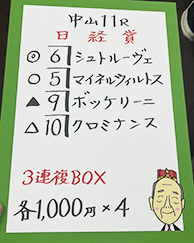 中山11R
日経賞
◎6シュトルーヴェ
○5マイネルウィルトス
▲9ボッケリーニ
△10クロミナンス
3連複BOX
各1,000円×4